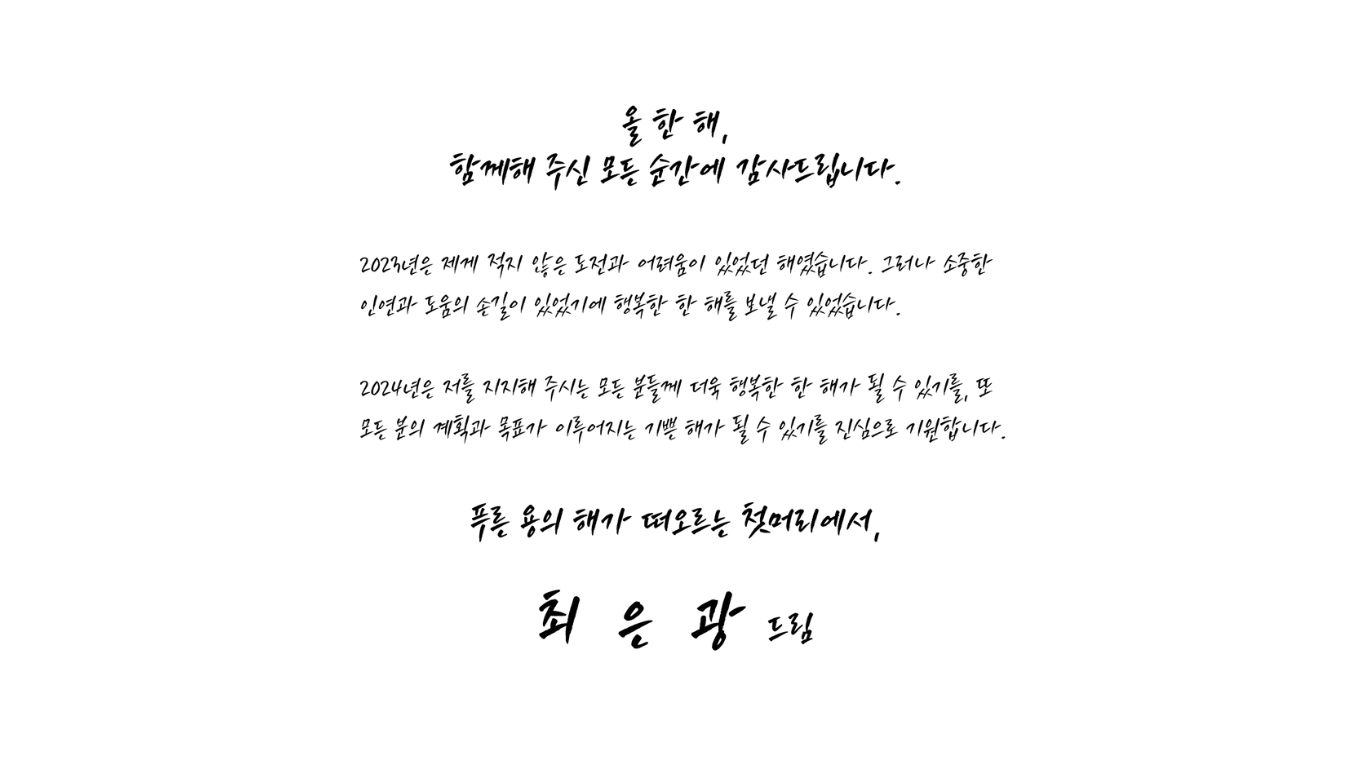 올 한 해,
함께해 주신 모든 순간에 감사드립니다.
2023년은 제게 적지 않은 도전과 어려움이 있었던 해였습니다. 그러나 소중한
인연과 도움의 손길이 있었기에 행복한 한 해를 보낼 수 있었습니다.
2024년은 저를 지지해 주시는 모든 분들께 더욱 행복한 한 해가 될 수 있기를, 또
모든 분의 계획과 목표가 이루어지는 기쁜 해가 될 수 있기를 진심으로 기원합니다.
푸른 용의 해가 떠오르는 첫머리에서,
최 은 광 드림